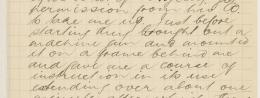 permission from his C.O.
to take me up. Just before
starting they brought out a
machine gun and mounted
it on a frame behind me
and gave me a course of
instruction in its use
extending over about one